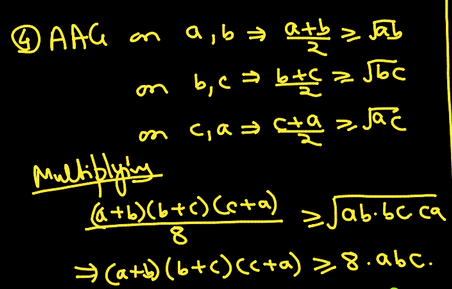 ④ AAG on a, b ⇒ a+b/2 ≥ √ab
on b, c ⇒ b+c/2 ≥ √bc
on c, a ⇒ c+a/2 ≥ √ac
Multiplying
(a+b)(b+c)(c+a)/8 ≥ √ab·bc ca
⇒ (a+b)(b+c)(c+a) ≥ 8·abc.